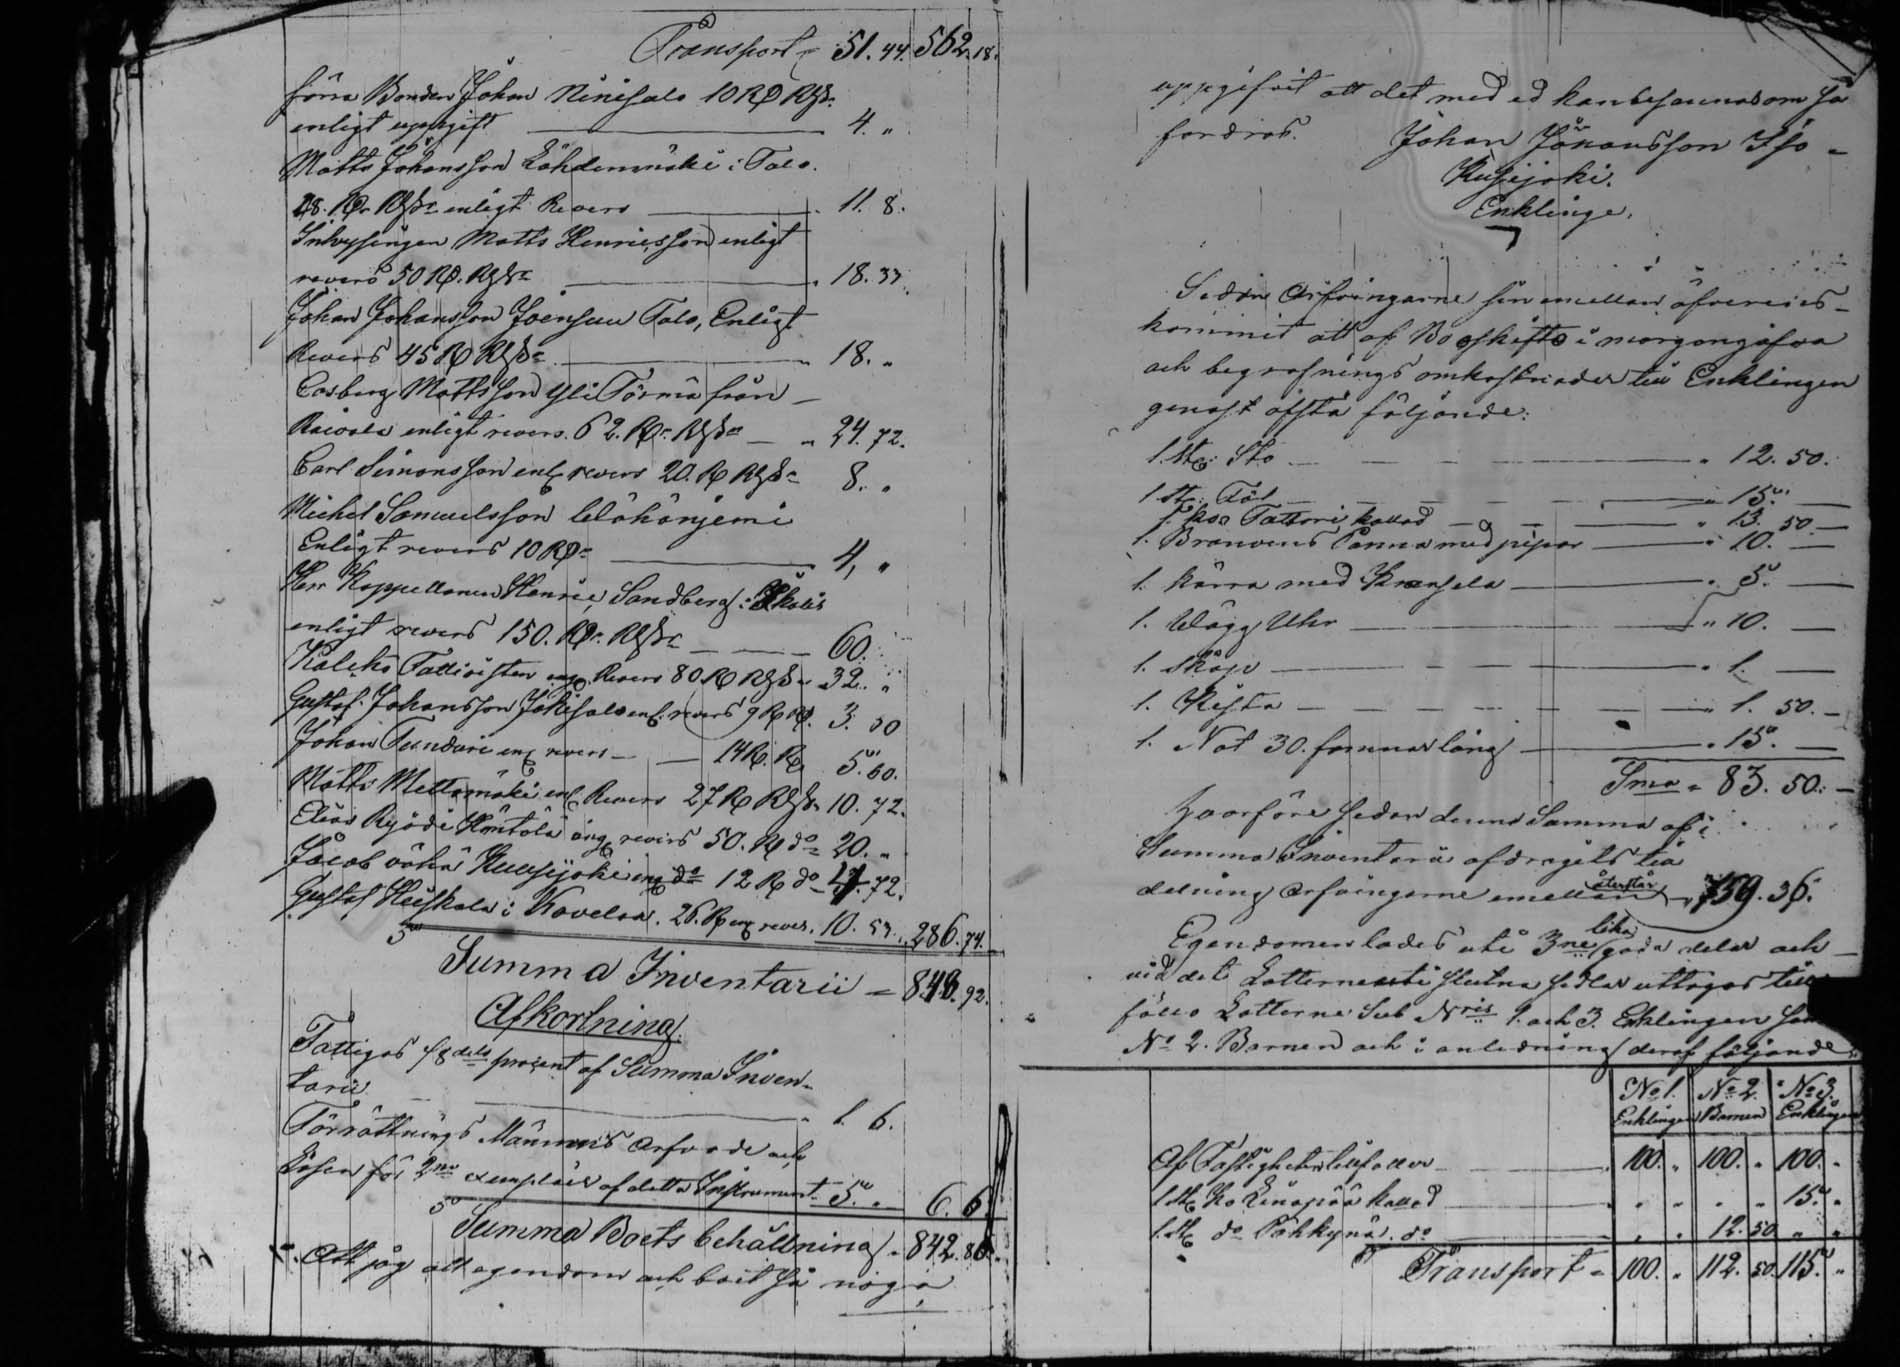 Transport = 51. 44. 562. 18.
förra Bonden Johan Ninisalo 10 R. Rgds
enligt uppgift 4. "
Matts Johansson Lähdemäki i Talo.
28. R. Rgds enligt Revers 11. 8.
Inhysingen Matts Henricsson enligt
revers 50 R. Rgds 18. 33
Johan Johansson Joensuu Talo, Enligt
Revers 45 R Rgds 18. "
Mattsson Yli Törmä från
enligt revers. 62. R. Rgds " 24. 72.
Carl Simonsson enl revers 20. R Rgds 8. "
Michel Samuelsson
Enligt revers 10 R 4, "
Herr Kappellanen Henric Sandberg i
enligt revers 150. R. Rgds 60.
Revers 80 R Rgds 32. "
Gustaf Johansson enl. revers 9 R 3. 60
Johan enl revers 14 R. R 5. 60.
Matts Mettomäki enl Revers 27 R Rgds 10. 72.
Elias enl revers 50. R do 20. "
Jacob enl do 12 R do 4. 72.
Gustaf i 26. R enl revers. 10. 286. 74.
Summa Inventarii = 848. 92.
Afkortning.
Fattigas 1/8 dels procent af Summa Inven-
tarii 1. 6.
Förrättnings Männens arfvode och
lösen för 2ne exemplair af detta Instrument 5. " 6. 6.
Summa Boets behållning = 842. 86.
Att jag all egendom och boit så noga
uppgifvit att det med ed kan besannas om så
fordras. Johan Johansson Iso =
Kusijoki.
Enklinge.
Sedan Arfvingarne sin emellan öfverens-
kommit att af Boskifte i morgongåfva
och begrafnings omkostnader till Enklingen
genast afstå följande:
1. st. Sto " 12. 50.
1 st. Föl " 15.
1. ko kallad " 13. 50
1. Brännvins Panna med pipor " 10.
1. kärra med " 5.
1. Wägg Uhr " 10.
1. skåp " 1.
1. Kista " 1. 50.
1. Not 30. famnar lång " 15.
Sma = 83. 50.
Hvarföre sedan denna Summa af i
Summa Inventarii afdragits till
delning Arfvingarne emellan återstår 759. 36.
Egendomen lades uti 3ne lika goda delar och
vid det Lotterne slutna sedlar uttogos till
föllo Lotterne Sub Nris 1. och 3. Enklingen
No 2. Barnen och i anledning deraf följande
No 1. No 2. No 3.
Enklingen Barnen Enklingen
Af Fastigheten tillfaller 100. " 100. " 100. "
1. st ko kallad " " " " 15. "
1. st do do " " 12. 50 " "
Transport = 100. " 112. 50. 115. "